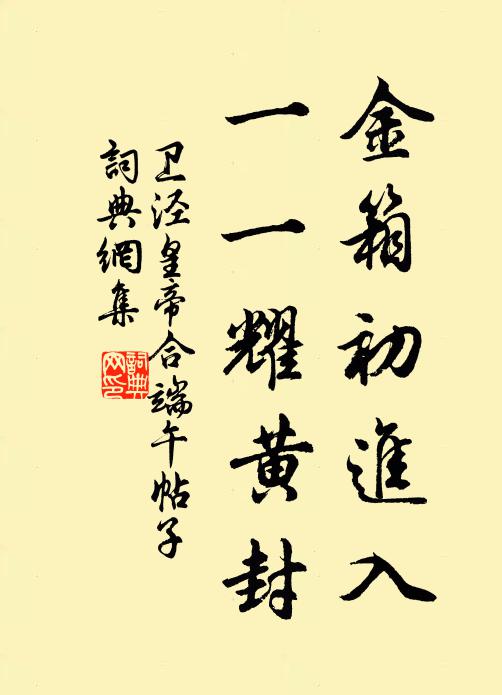 金箱初進入
一一耀黄封
卫泾皇帝合端午帖子
詞典網集
詞典网印